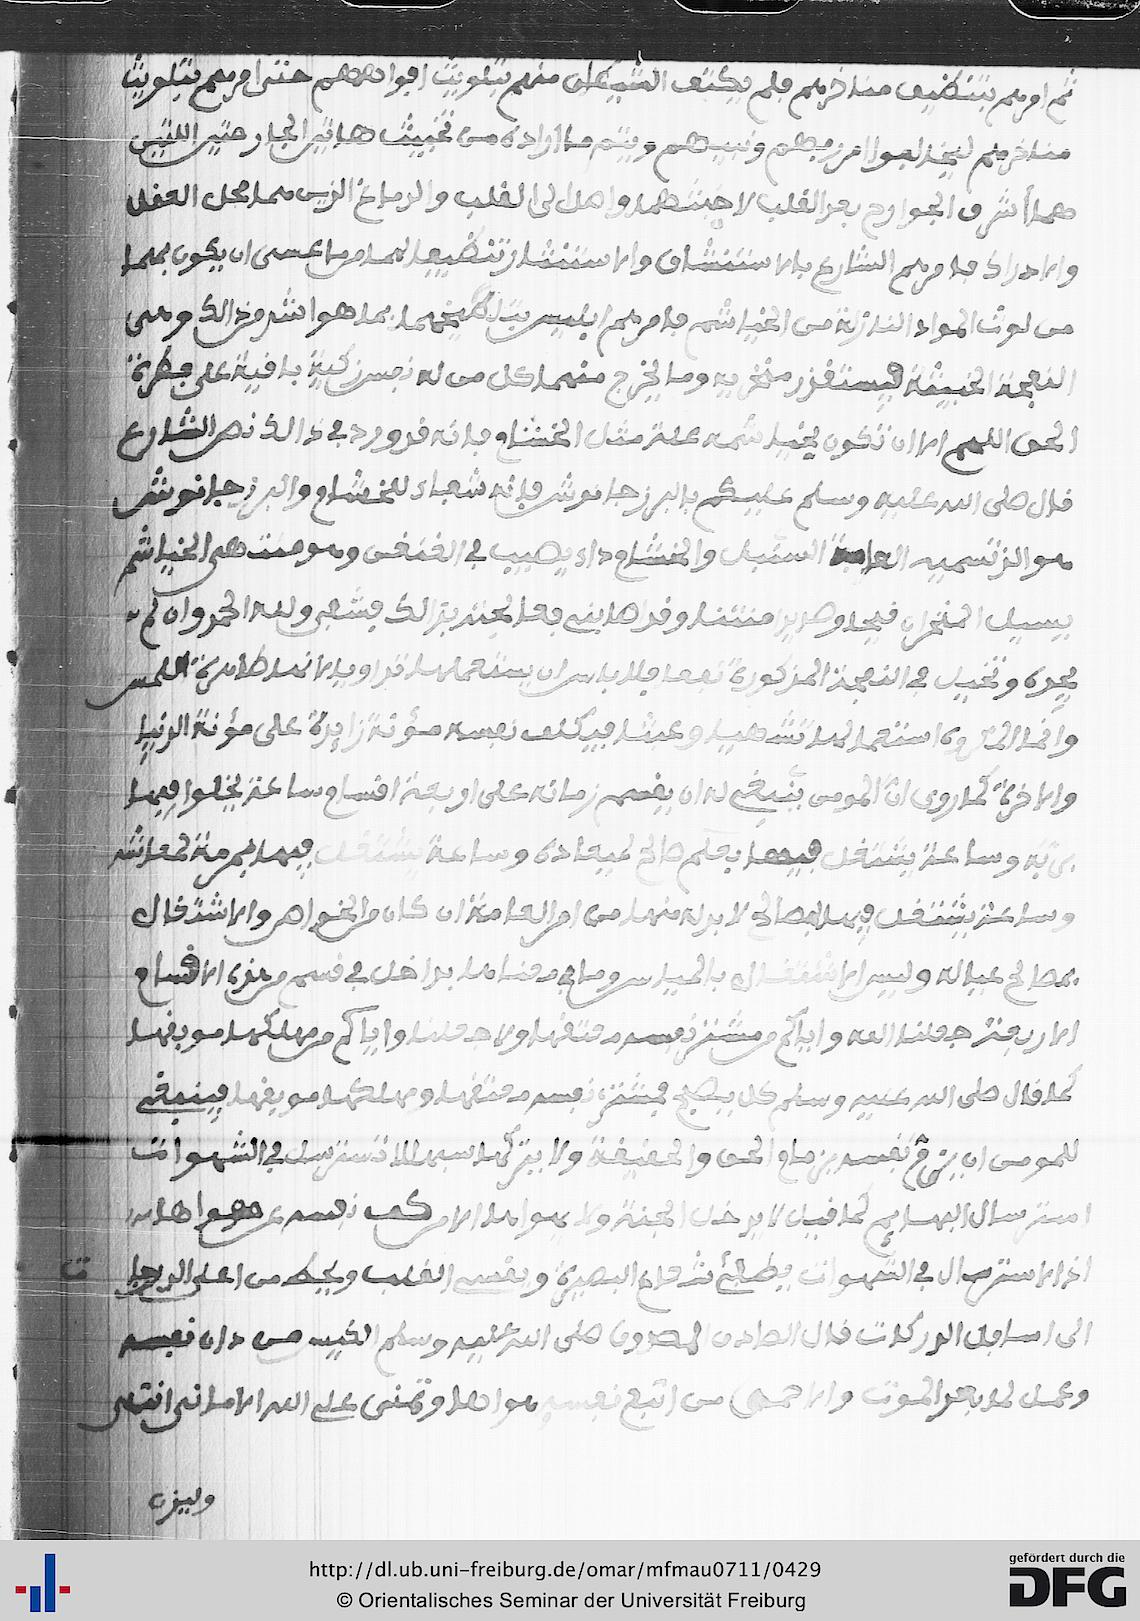 ثم امرهم بتنظيف مناخرهم فلم يكتف الشيطان منهم بتلويث افواههم حتى امرهم بتلويث
مناخرهم ليخالفوا امر ربهم ونبيهم ويتم ما اراده من تخبيث هاتين الجارحتين اللتين
هما أشرف الجوارح بعد القلب لا جنبتهما واصل الى القلب والدماغ الذين هما محل العقل
والادراك فامرهم الشارع بالاستنشاق والاستنثار تنظيفا لهما مما عسى ان يكون بهما
من لوث المواد النازلة من الخياشم فامرهم ابليس بتلطيخهما بما هو اشد من ذالك وهى
النفحة الخبيثة فيستقذر منخريه وما يخرج منهما كل من له نفس زكية باقية على فطرة
الحق اللهم الا ان تكون بخياشمه علة مثل الخشام فانه قد ورد في ذالك نص الشارع
قال صلى الله عليه وسلم عليكم بالمرزجانوش فانه شفاء للخشام والمرزجانوش
هو الذي تسميه العامة السنبل والخشام داء يصيب في الغنغن وهو منتهى الخياشم
يسيل المنخران قيحا وصديدا منتنا وقد اصابني فعالجته بذالك فشفى ولله الحمد وان لم
يجده وتخيل في النفحة المذكورة نفعا فلا باس ان يستعملها تداويا لانها طاهرة اللمس
وانما المكروه استعمالها تشهيا وعبثا فيكلف نفسه مؤنة زايدة على مؤنة الدنيا
والاخرة كما روى ان المومن ينبغي له ان يقسم زمانه على اربعة اقسام ساعة يخلوا فيها
بربه وساعة يشتغل فيها بعلم صالح لميعاده وساعة يشتغل فيها بمرمة لمعاشه
وساعة يشتغل فيها لمصالح لا بد له منها من امر العامة ان كان من الخواص والاشتغال
بمصالح عياله وليس الاشتغال بالميسر وما في معناها بداخل في قسم من هذه الاقسام
الاربعة جعلنا الله واياكم من مشتر نفسه معتقها ولا جعلنا واياكم من مهلكها موبقها
كما قال صلى الله عليه وسلم كل يصبح فمشتر نفسه معتقها ومهلكها موبقها فينبغي
للمومن ان يزم نفسه بزمام الحق والحقيقة ولا يتركها سبهللا تسترسل في الشهوات
استرسال البهايم كما قيل لا يدخل الجنة ولا يهواها الا من كف نفسه عن هواها
اذ الاسترسال في الشهوات يطفئ شعاع البصيرة ويقسى القلب ويحط من اعلى الدرجات
الى اسافل الدركات قال الصادق المصدوق صلى الله عليه وسلم الكيس من دان نفسه
وعمل لما بعد الموت والاحمق من اتبع نفسه هواها وتمنى على الله الامانى انتهى
وليزن
http://dl.ub.uni-freiburg.de/omar/mfmau0711/0429
© Orientalisches Seminar der Universität Freiburg
gefördert durch die
DFG